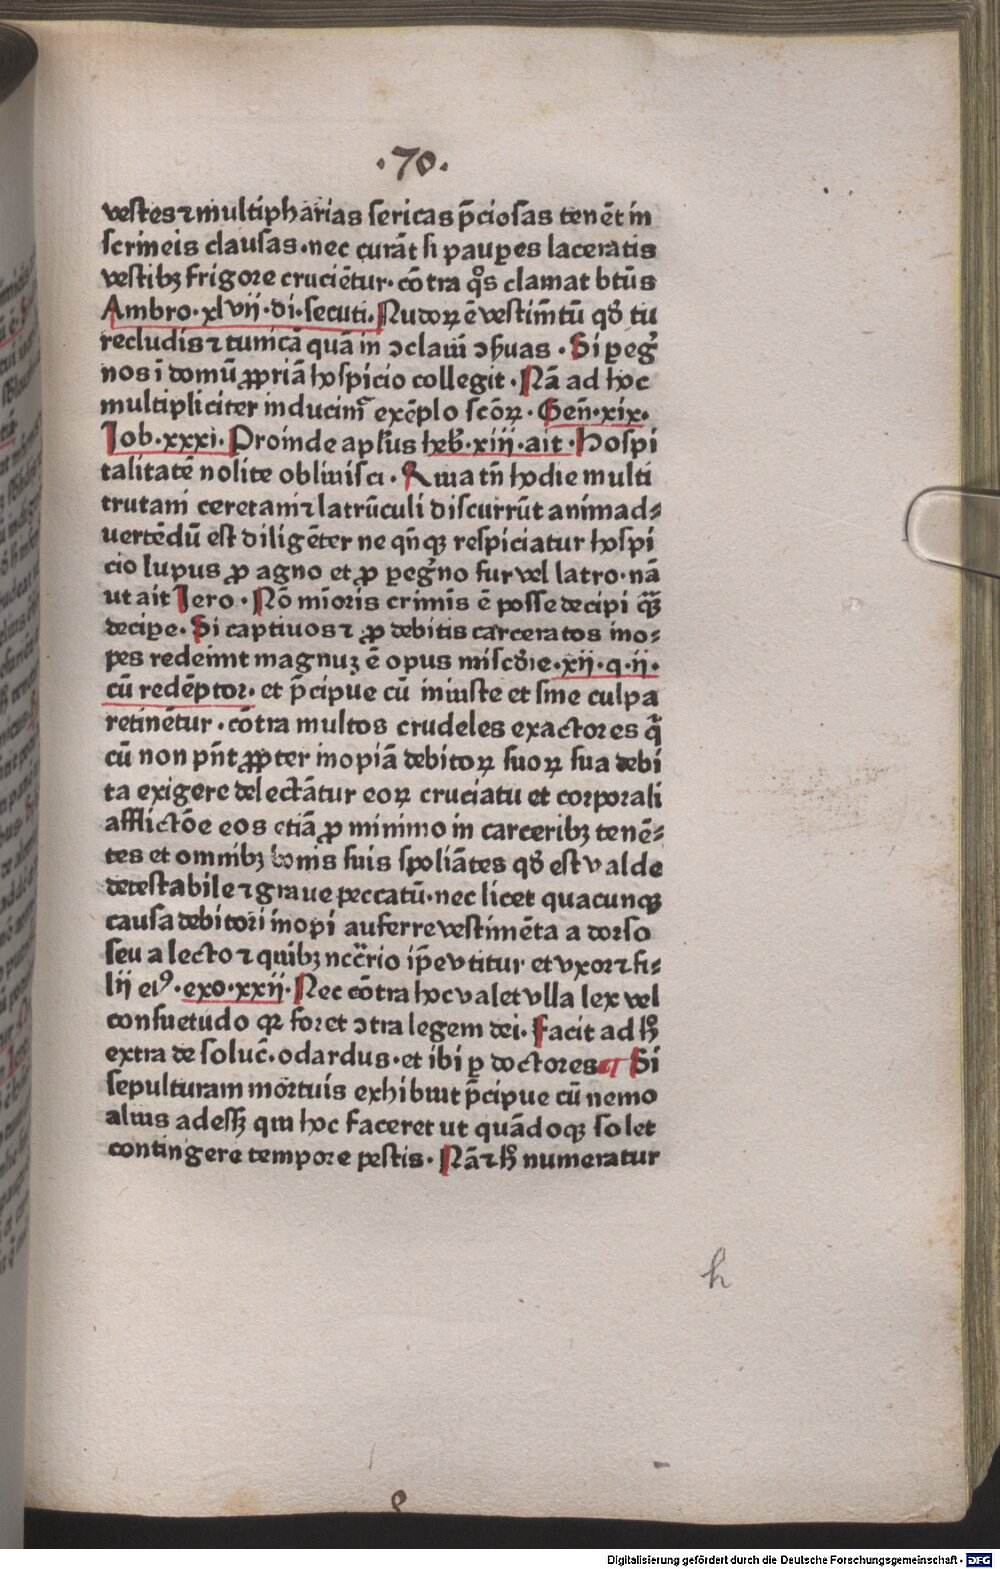 ·70·
vestes ⁊ multipharias sericas p̄ciosas tenēt in
scrineis clausas·nec curāt si paup̲es laceratis
vestibꝫ frigore cruciētur·cōtra qͦs clamat btūs
Ambro·xlvii·di·secuti·Nudoꝝ ē vestim̄tū qđ tu
recludis ⁊ tunicā quā in ↄclaui ↄẜuas·Si ꝑeg̉
nos ī domū ꝓpriā hospicio collegit·Nā ad hoc
multipliciter inducim᷒ exēplo scōꝝ·Geñ·xix·
Iob·xxxi·Proinde apl̄us heb̄·xiii·ait·Hospi
talitatē nolite obliuisci·Quia tn̄ hodie multi
trutani ceretani ⁊ latrūculi discurrūt animad⸗
uertēdū est diligēter ne qn̄qꝫ respiciatur hospi
cio lupus ꝓ agno et ꝓ ꝑeg̉no fur vel latro·nā
ut ait Iero·Nō mīoris crimīs ē posse decipi qꝫ̄
decipe·Si captiuos ⁊ ꝓ debitis carceratos ino⸗
pes redeimt magnuꝫ ē opus miscđie·xii·q·ii·
cū redēptor·et p̄cipue cū iniuste et sine culpa
retinētur·cōtra multos crudeles exactores q̄
cū non pn̄t ꝓpter inopiā debitoꝝ suoꝝ sua debi
ta exigere delectātur eoꝝ cruciatu et corporali
afflictōe eos etiā ꝓ minimo in carceribꝫ tenē⸗
tes et omnibꝫ bonis suis spoliātes qđ est valde
detestabile ⁊ graue peccatū·nec licet quacunqꝫ
causa debitori inopi auferre vestimēta a dorso
seu a lecto ⁊ quibꝫ nccr̄io ip̄e vtitur et vxor ⁊ fi⸗
lii eiꝰ·exo·xxii·Nec cōtra hoc valet vlla lex vel
consuetudo qꝛ foret ↄtra legem dei·Facit ad hͦ
extra de soluc̄·odardus·et ibi ꝑ doctores ¶ Si
sepulturam mortuis exhibuit p̄cipue cū nemo
alius adessꝫ qui hoc faceret ut quādoqꝫ solet
contingere tempore pestis·Nā ⁊ hͦ numeratur
h
Digitalisierung gefördert durch die Deutsche Forschungsgemeinschaft - DFG